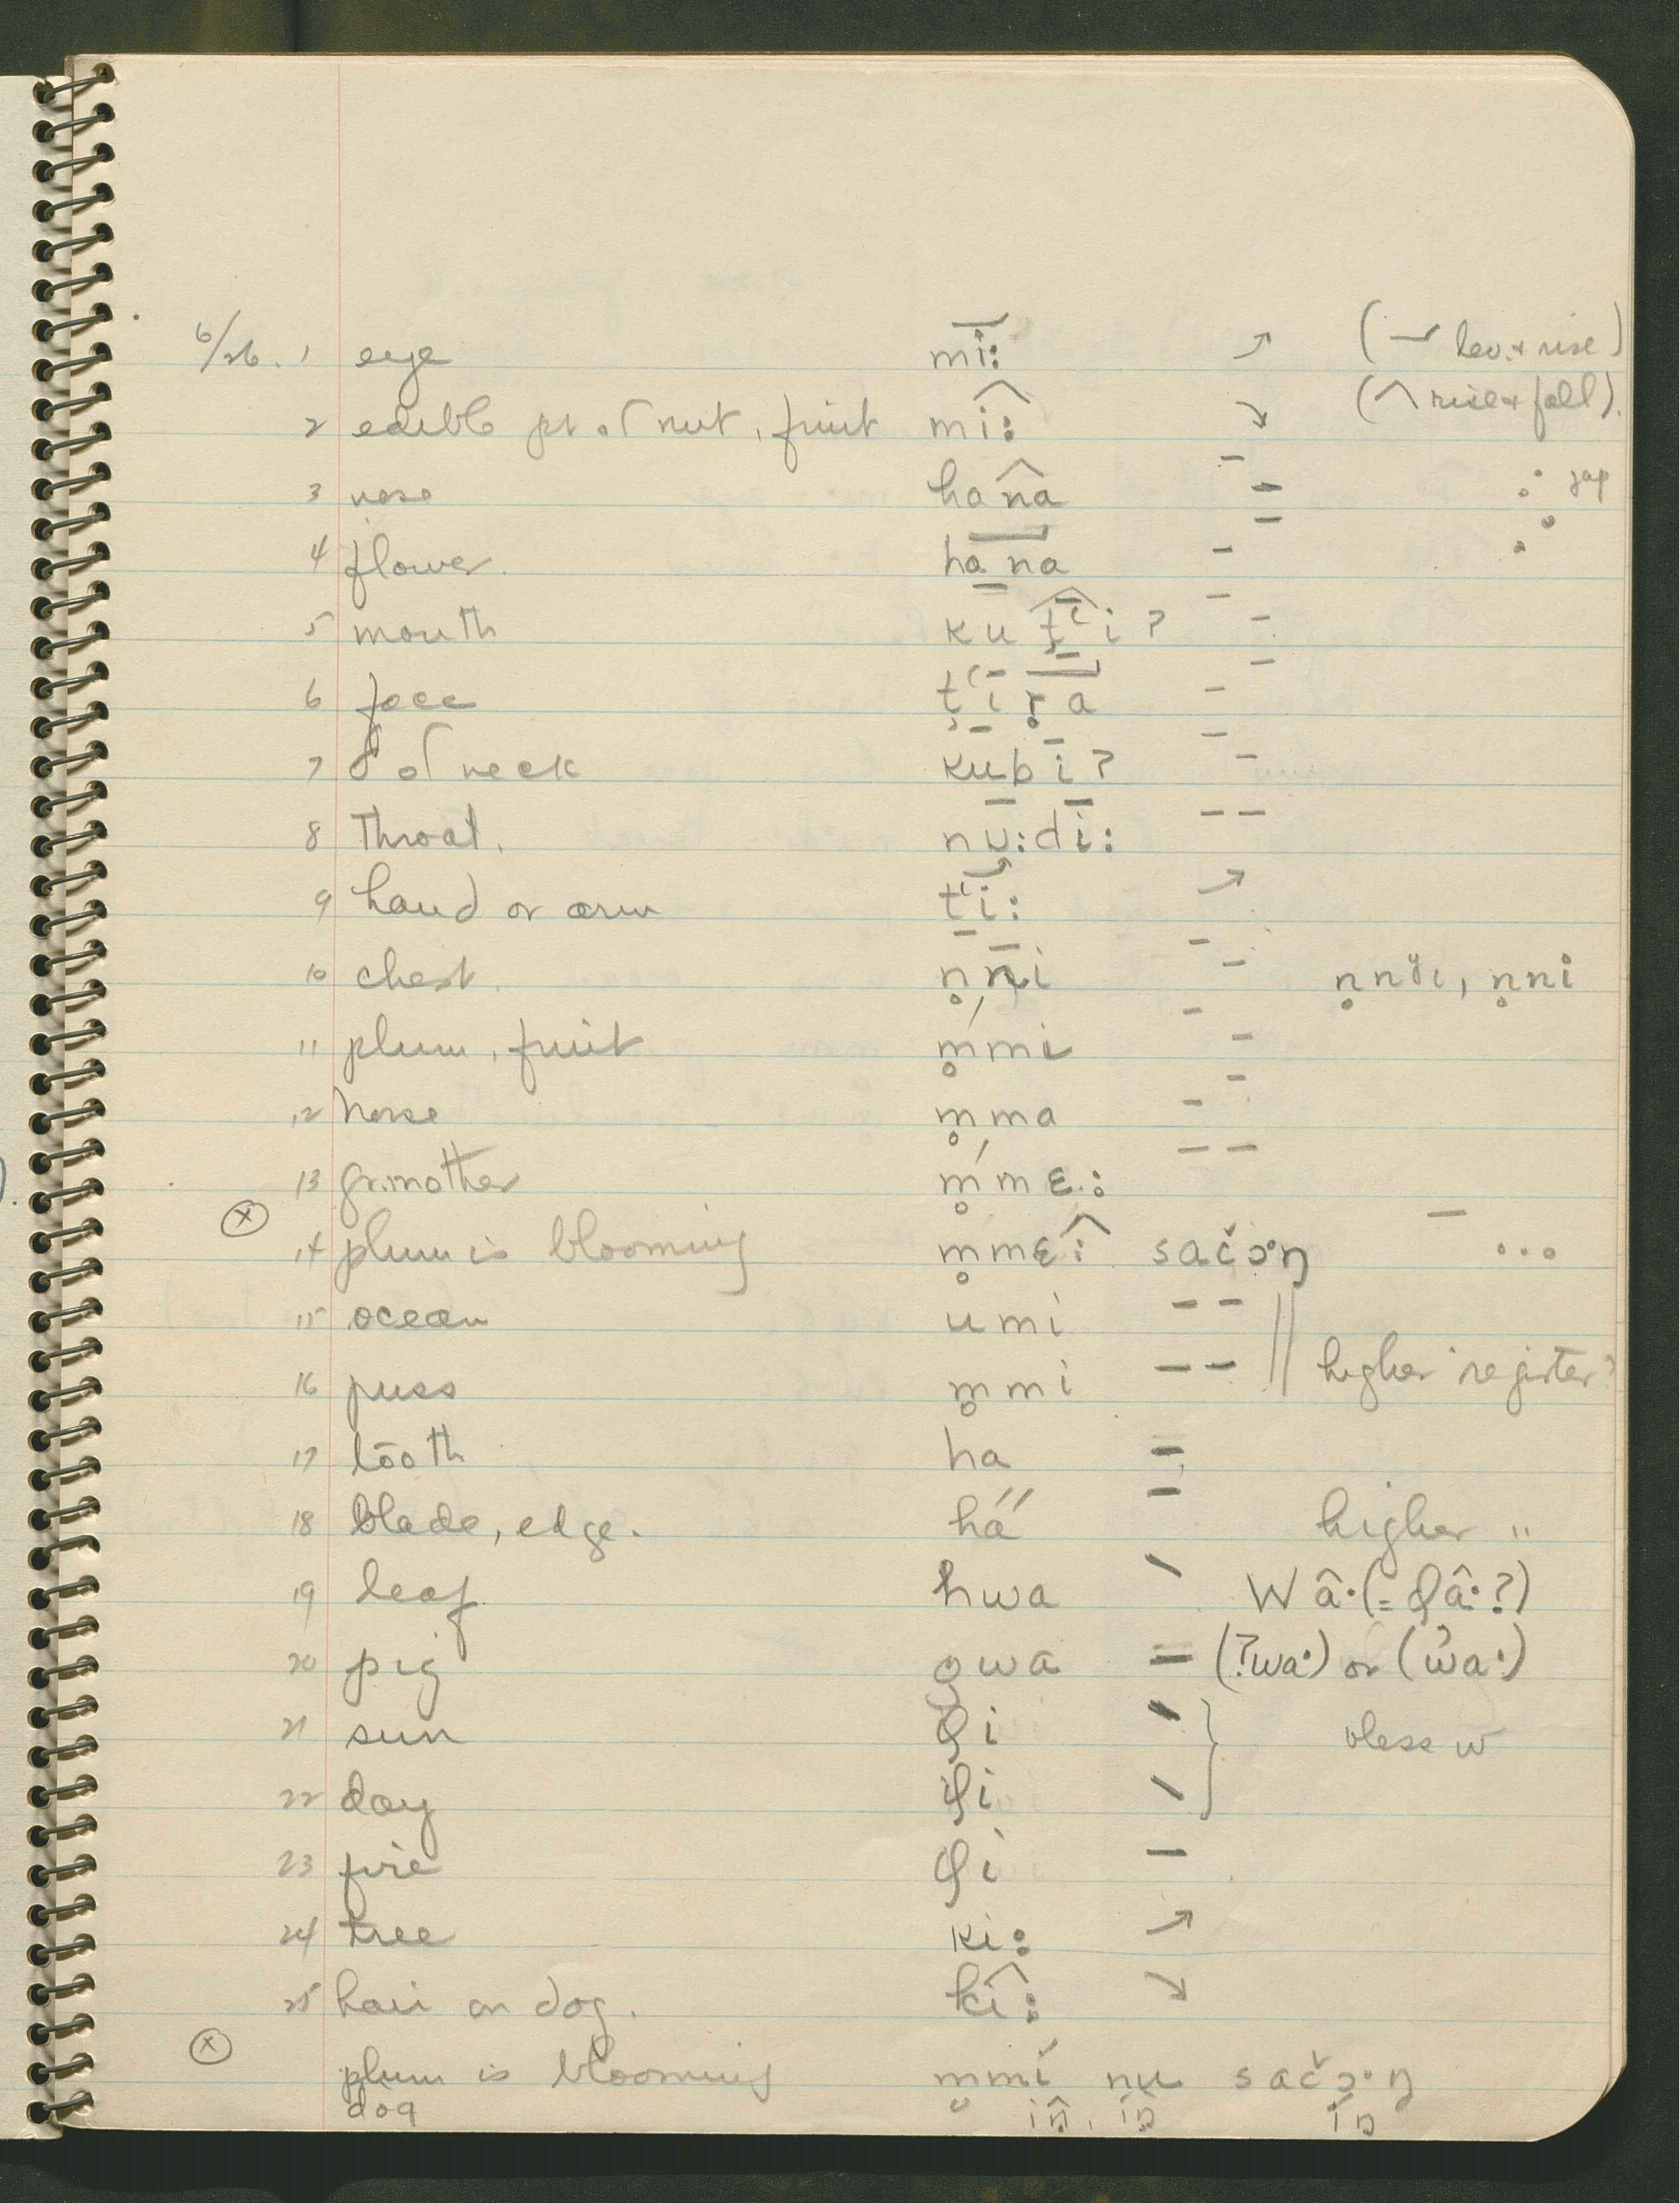 6/26. 1 eye mi: ↗ (lev. + rise)
2 edible pt of nut, fruit mî: ↘ (^ rise + fall).
3 nose hana Jap
4 flower. hana
5 mouth ku ţʻi ?
6 face ţʻi ṛa
7 of neck kubi ?
8 throat. nu:di:
9 hand or arm tʻi: ↗
10 chest. n̥ni n̥nʸi, n̥ni
11 plum, fruit m̥mi
12 horse m̥ma
13 gr.mother ḿ̥mɛ:
14 plum is blooming m̥mɛî sačɔ·ŋ
15 ocean umi – –
16 puss m̥mi – – || higher register?
17 tooth ha =
18 blade, edge. há́ higher "
19 leaf hwa \ W â·(= φâ·?)
20 pig gwa = (ʔwa·) or (w̓a·)
21 sun φi \
vless w
22 day φi \
23 fire φi –
24 tree ki: ↗
25 hair on dog. kî: ↘
plum is blooming m̥mi nu sačɔ·ŋ
dog iŋ̂, iŋ íŋ